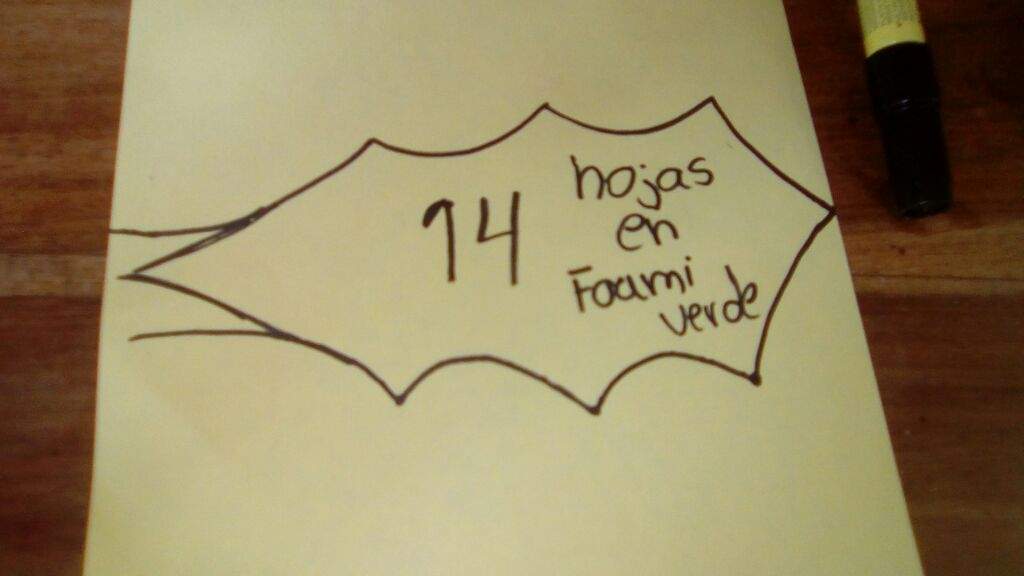 14
hojas
en
Foami
verde